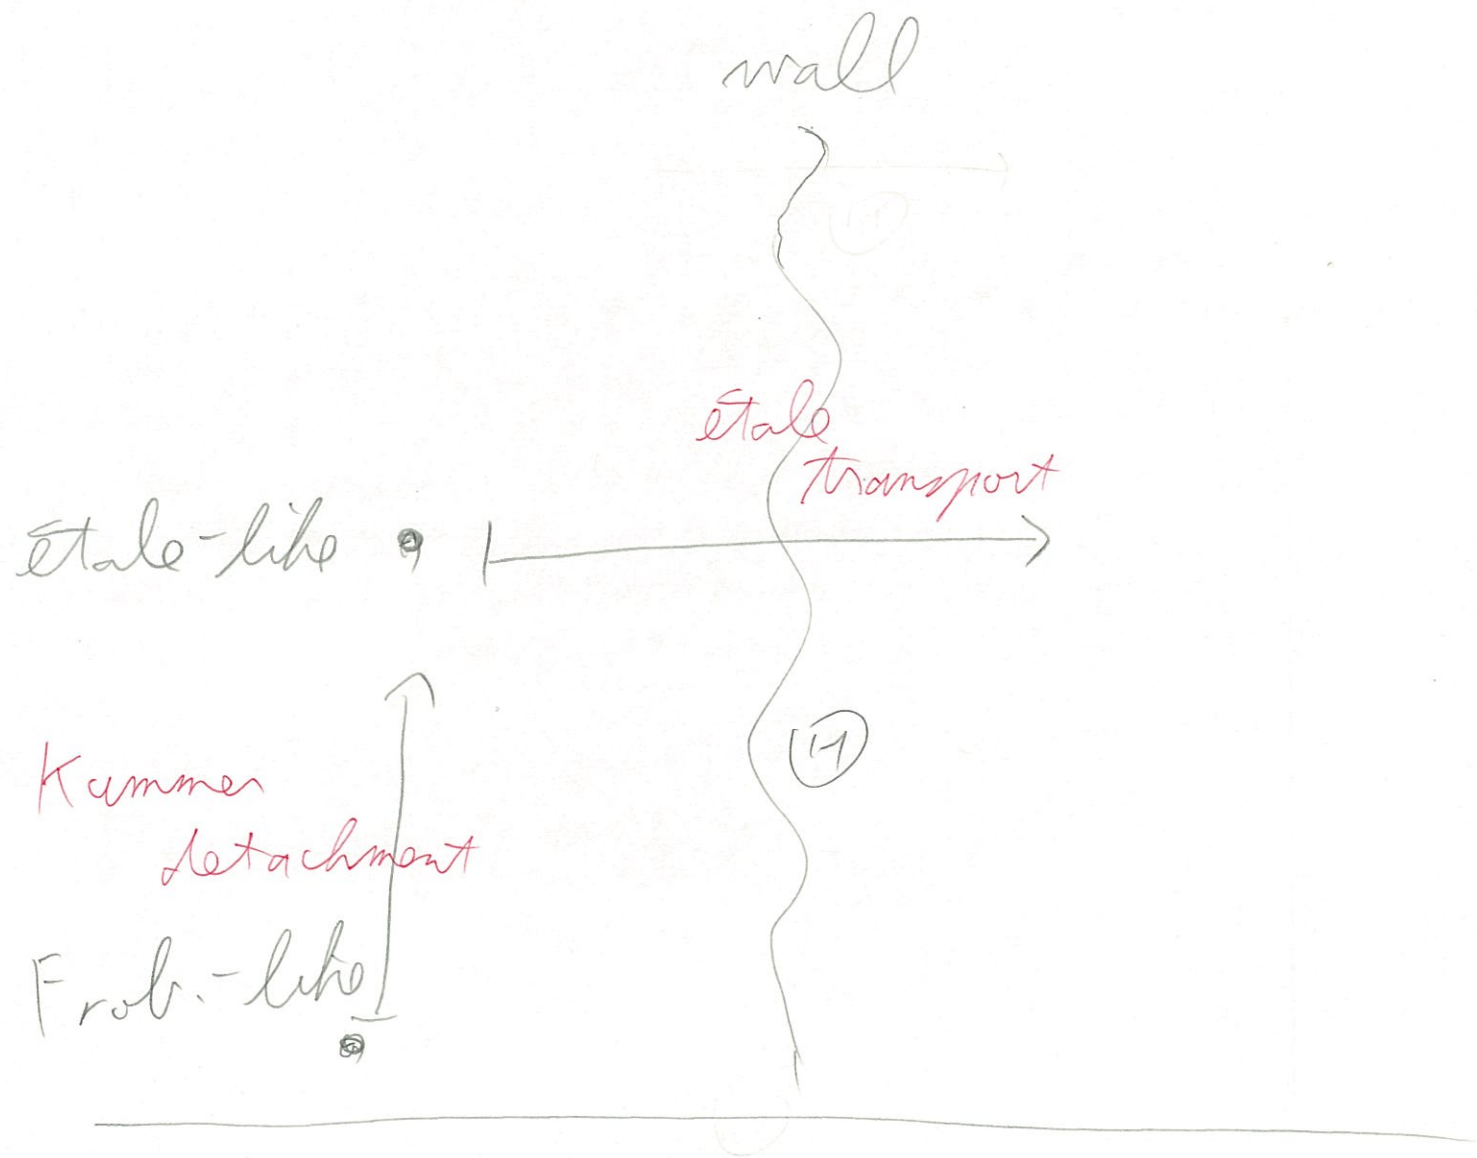 wall
étale
transport
étale-like
Θ
Kummer
detachment
Frob.-like